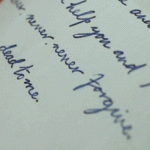 help you and I
never never forgive.
dead to me.